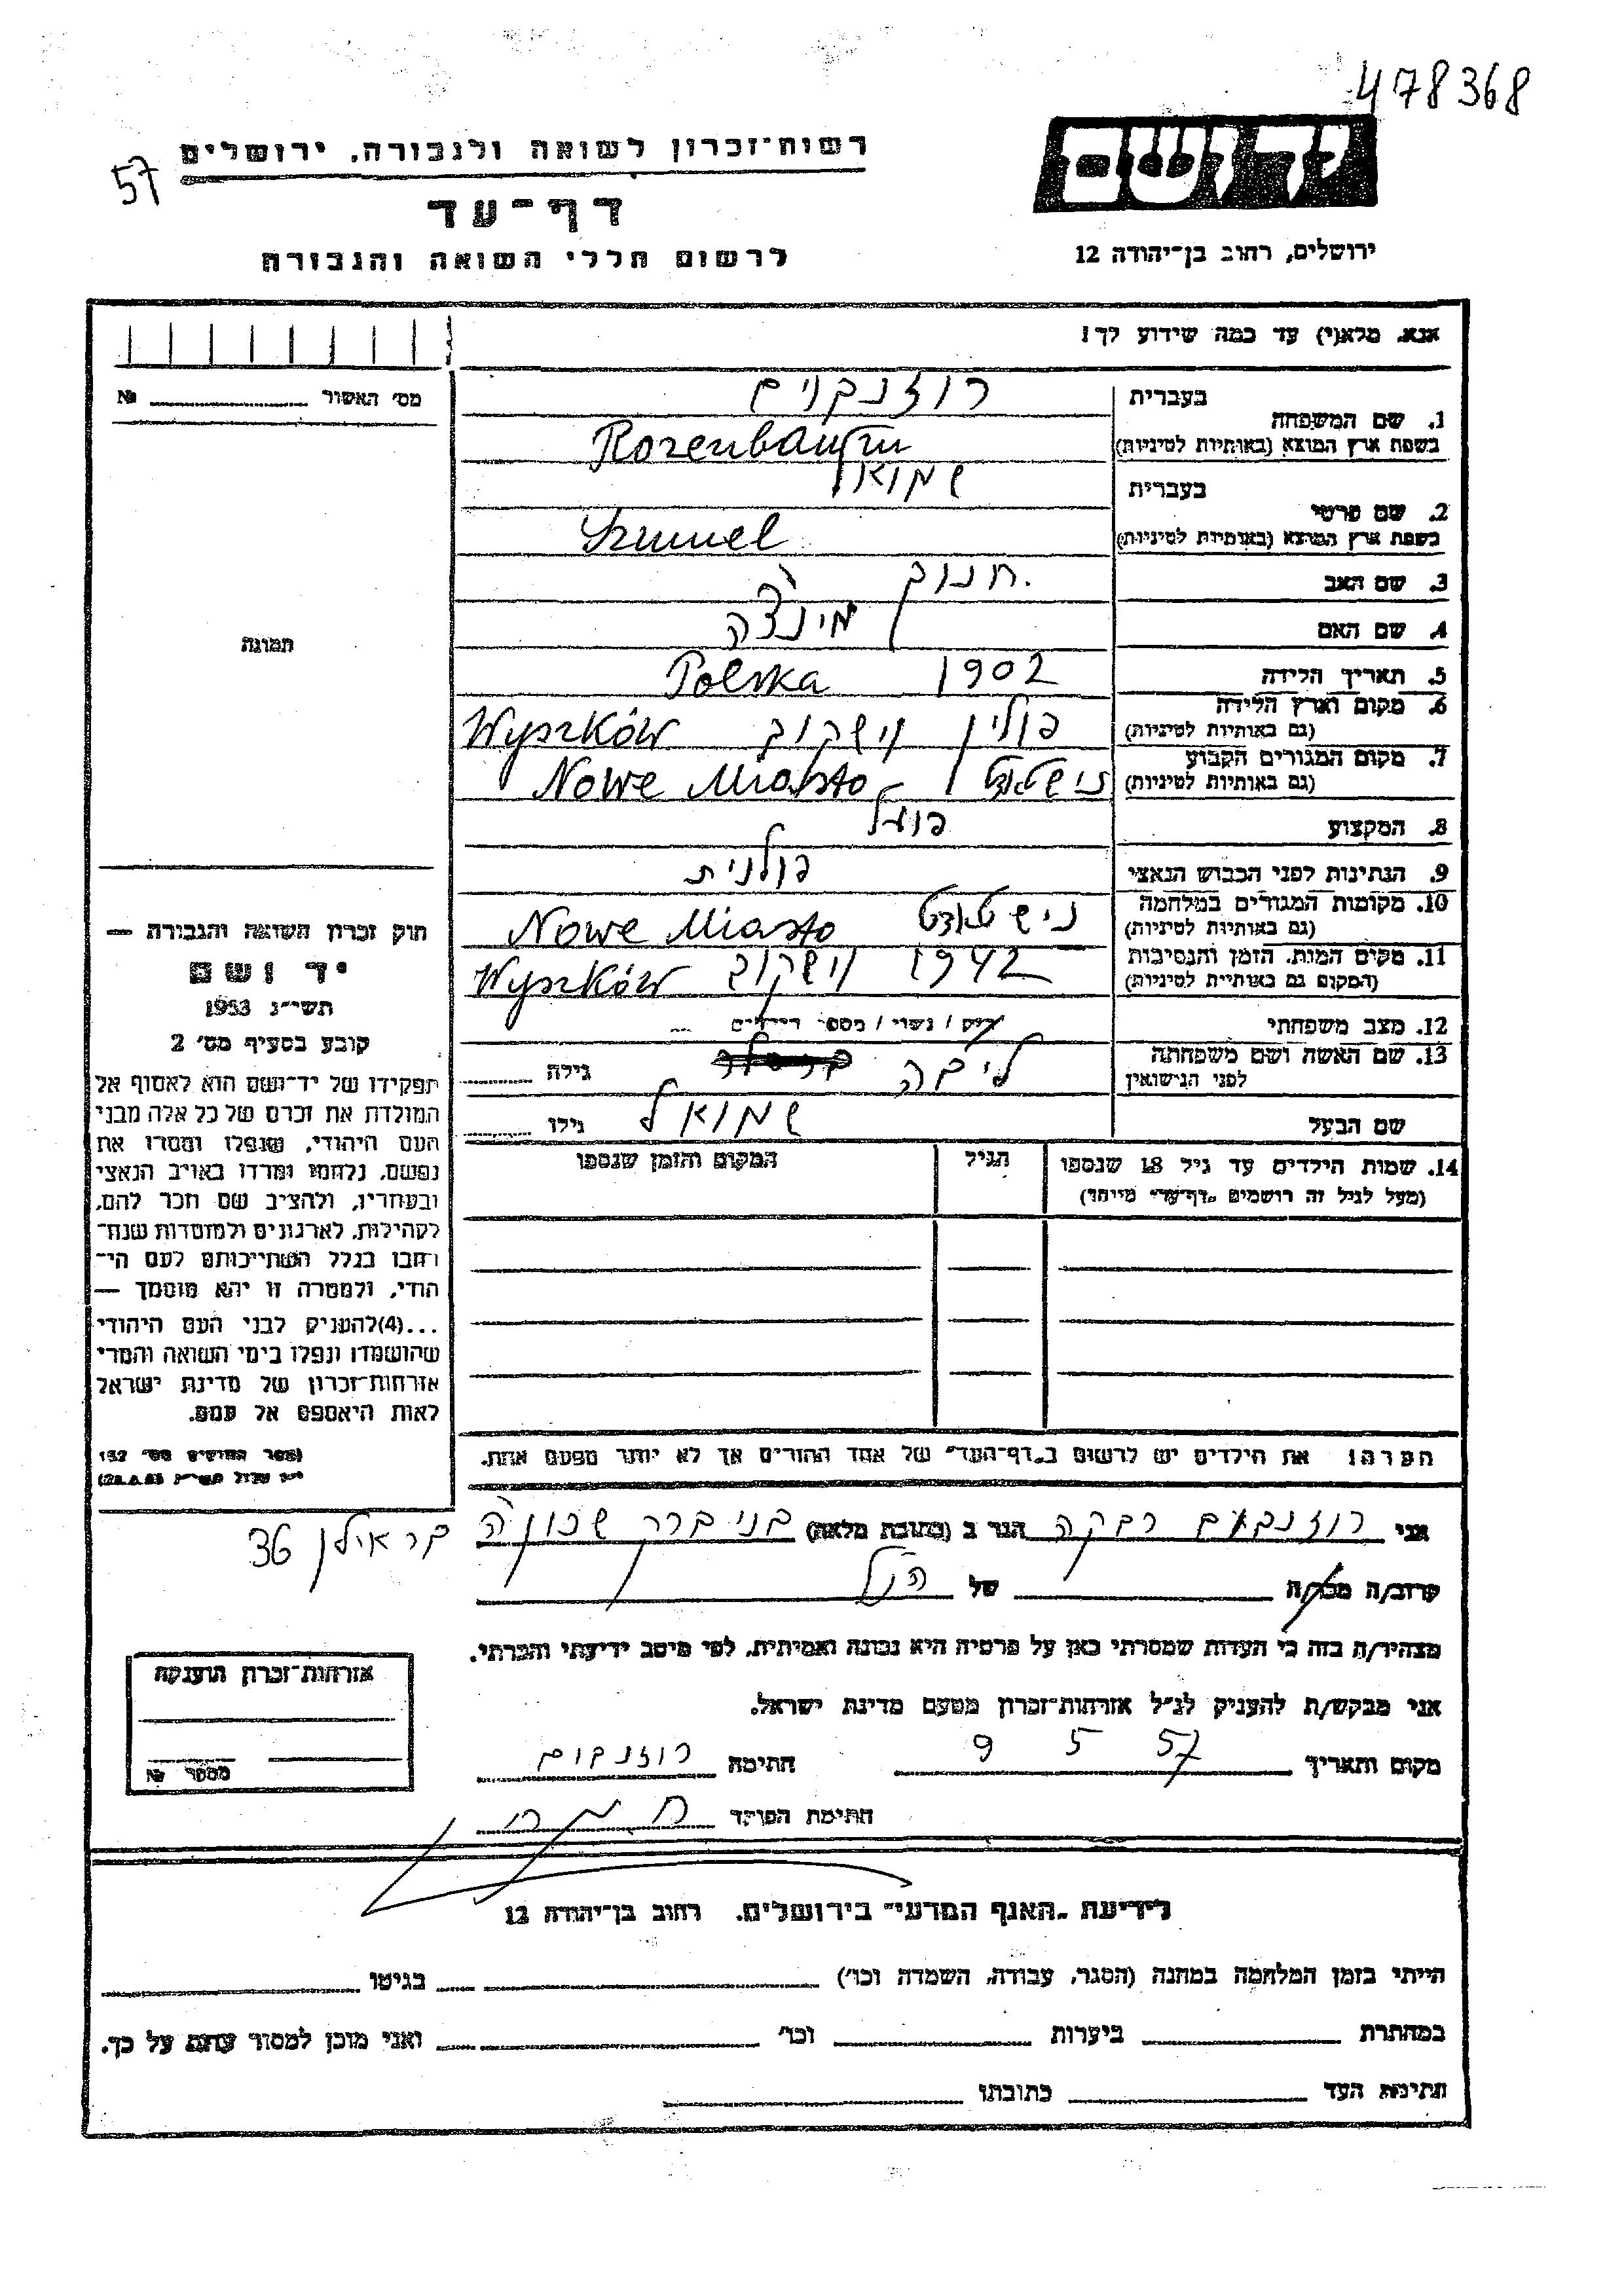 478368
57
רשות־זכרון לשואה ולגבורה, ירושלים
יד ושם
דף־עד
לרשום חללי השואה והגבורה
ירושלים, רחוב בן־יהודה 12
אנא, מלא(י) עד כמה שידוע לך!
מס׳ האשור № 
1. שם המשפחה
בעברית רוזנבוים
בשפת ארץ המוצא (באותיות לטיניות) Rozenbaum
2. שם פרטי
בעברית שמואל
בשפת ארץ המוצא (באותיות לטיניות) Szmuel
3. שם האב חנוך
4. שם האם מינצ'ה
תמונה
5. תאריך הלידה 1902 Polska
6. מקום וארץ הלידה (גם באותיות לטיניות) פולין וישקוב Wyszków
7. מקום המגורים הקבוע (גם באותיות לטיניות) נישטאדט Nowe Miasto
8. המקצוע פועל
9. הנתינות לפני הכבוש הנאצי פולנית
10. מקומות המגורים במלחמה (גם באותיות לטיניות) נישטאדט Nowe Miasto
11. מקום המות, הזמן והנסיבות (המקום גם באותיות לטיניות) 1942 וישקוב Wyszków
12. מצב משפחתי רווק / נשוי / מספר הילדים
13. שם האשה ושם משפחתה לפני הנישואין ליבה גילה
שם הבעל שמואל גילו
14. שמות הילדים עד גיל 18 שנספו
(מעל לגיל זה רושמים „דף־עד״ מיוחד)
הגיל
המקום והזמן שנספו
חוק זכרון השואה והגבורה —
יד ושם
תשי״ג 1953
קובע בסעיף מס׳ 2
תפקידו של יד־ושם הוא לאסוף אל
המולדת את זכרם של כל אלה מבני
העם היהודי, שנפלו ומסרו את
נפשם, נלחמו ומרדו באויב הנאצי
ובעוזריו, ולהציב שם וזכר להם,
לקהילות, לארגונים ולמוסדות שנח־
רבו בגלל השתייכותם לעם הי־
הודי, ולמטרה זו יהא מוסמך —
...(4)להעניק לבני העם היהודי
שהושמדו ונפלו בימי השואה והמרי
אזרחות־זכרון של מדינת ישראל
לאות היאספם אל עמם.
(ספר החוקים מס׳ 132
הערה! את הילדים יש לרשום ב„דף־העד״ של אחד ההורים אך לא יותר מפעם אחת.
אני רוזנבאום רבקה הגר ב (כתובת מלאה) בני ברק שכונה ה'
בר אילן 36
קרוב/ה מכר/ה של הנ"ל
מצהיר/ה בזה כי העדות שמסרתי כאן על פרטיה היא נכונה ואמיתית, לפי מיטב ידיעתי והכרתי.
אני מבקש/ת להעניק לנ״ל אזרחות־זכרון מטעם מדינת ישראל.
מקום ותאריך 9 5 57 חתימה רוזנבוים
חתימת הפוקד
אזרחות־זכרון הוענקה
מספר №
לידיעת „האגף המדעי״ בירושלים, רחוב בן־יהודה 12
הייתי בזמן המלחמה במחנה (הסגר, עבודה, השמדה וכו׳) בגיטו
במחתרת ביערות וכו׳ ואני מוכן למסור עדות על כך.
חתימת העד כתובתו